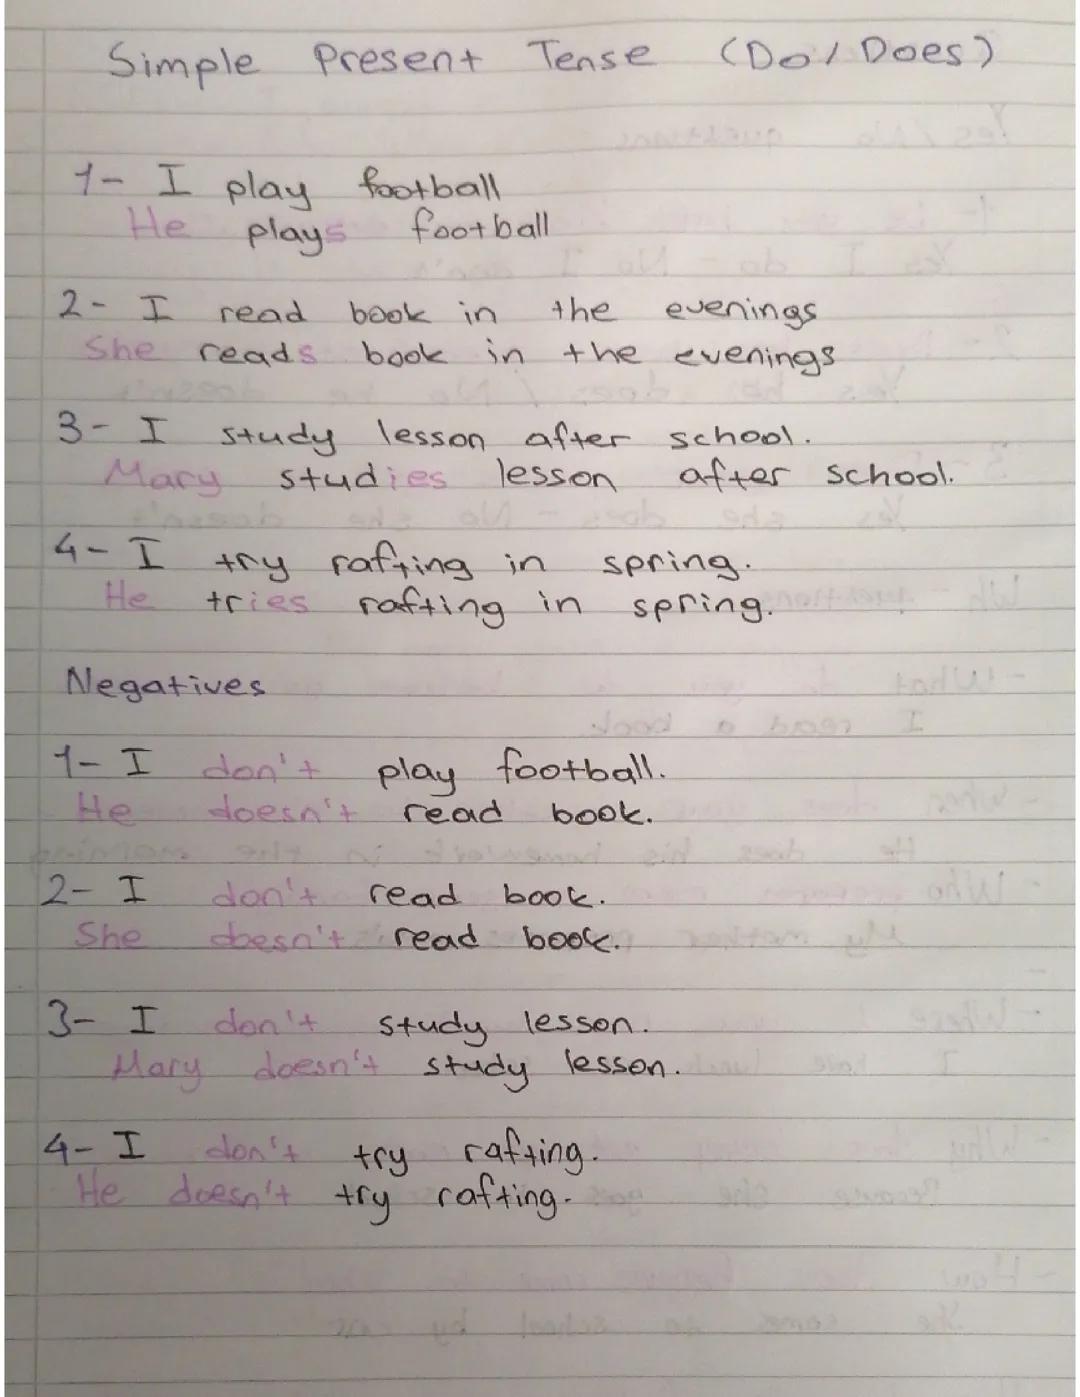 Simple Present Tense (Do/Does)
1- I play football
He plays football
2- I read book in the evenings
She reads book in the evenings
3- I study lesson after school.
Mary studies lesson after school.
4- I try rafting in spring.
He tries rafting in spring.
Negatives
1- I don't play football.
He doesn't read book.
2- I don't read book.
She doesn't read book.
3- I don't study lesson.
Mary doesn't study lesson.
4- I don't try rafting.
He doesn't try rafting.